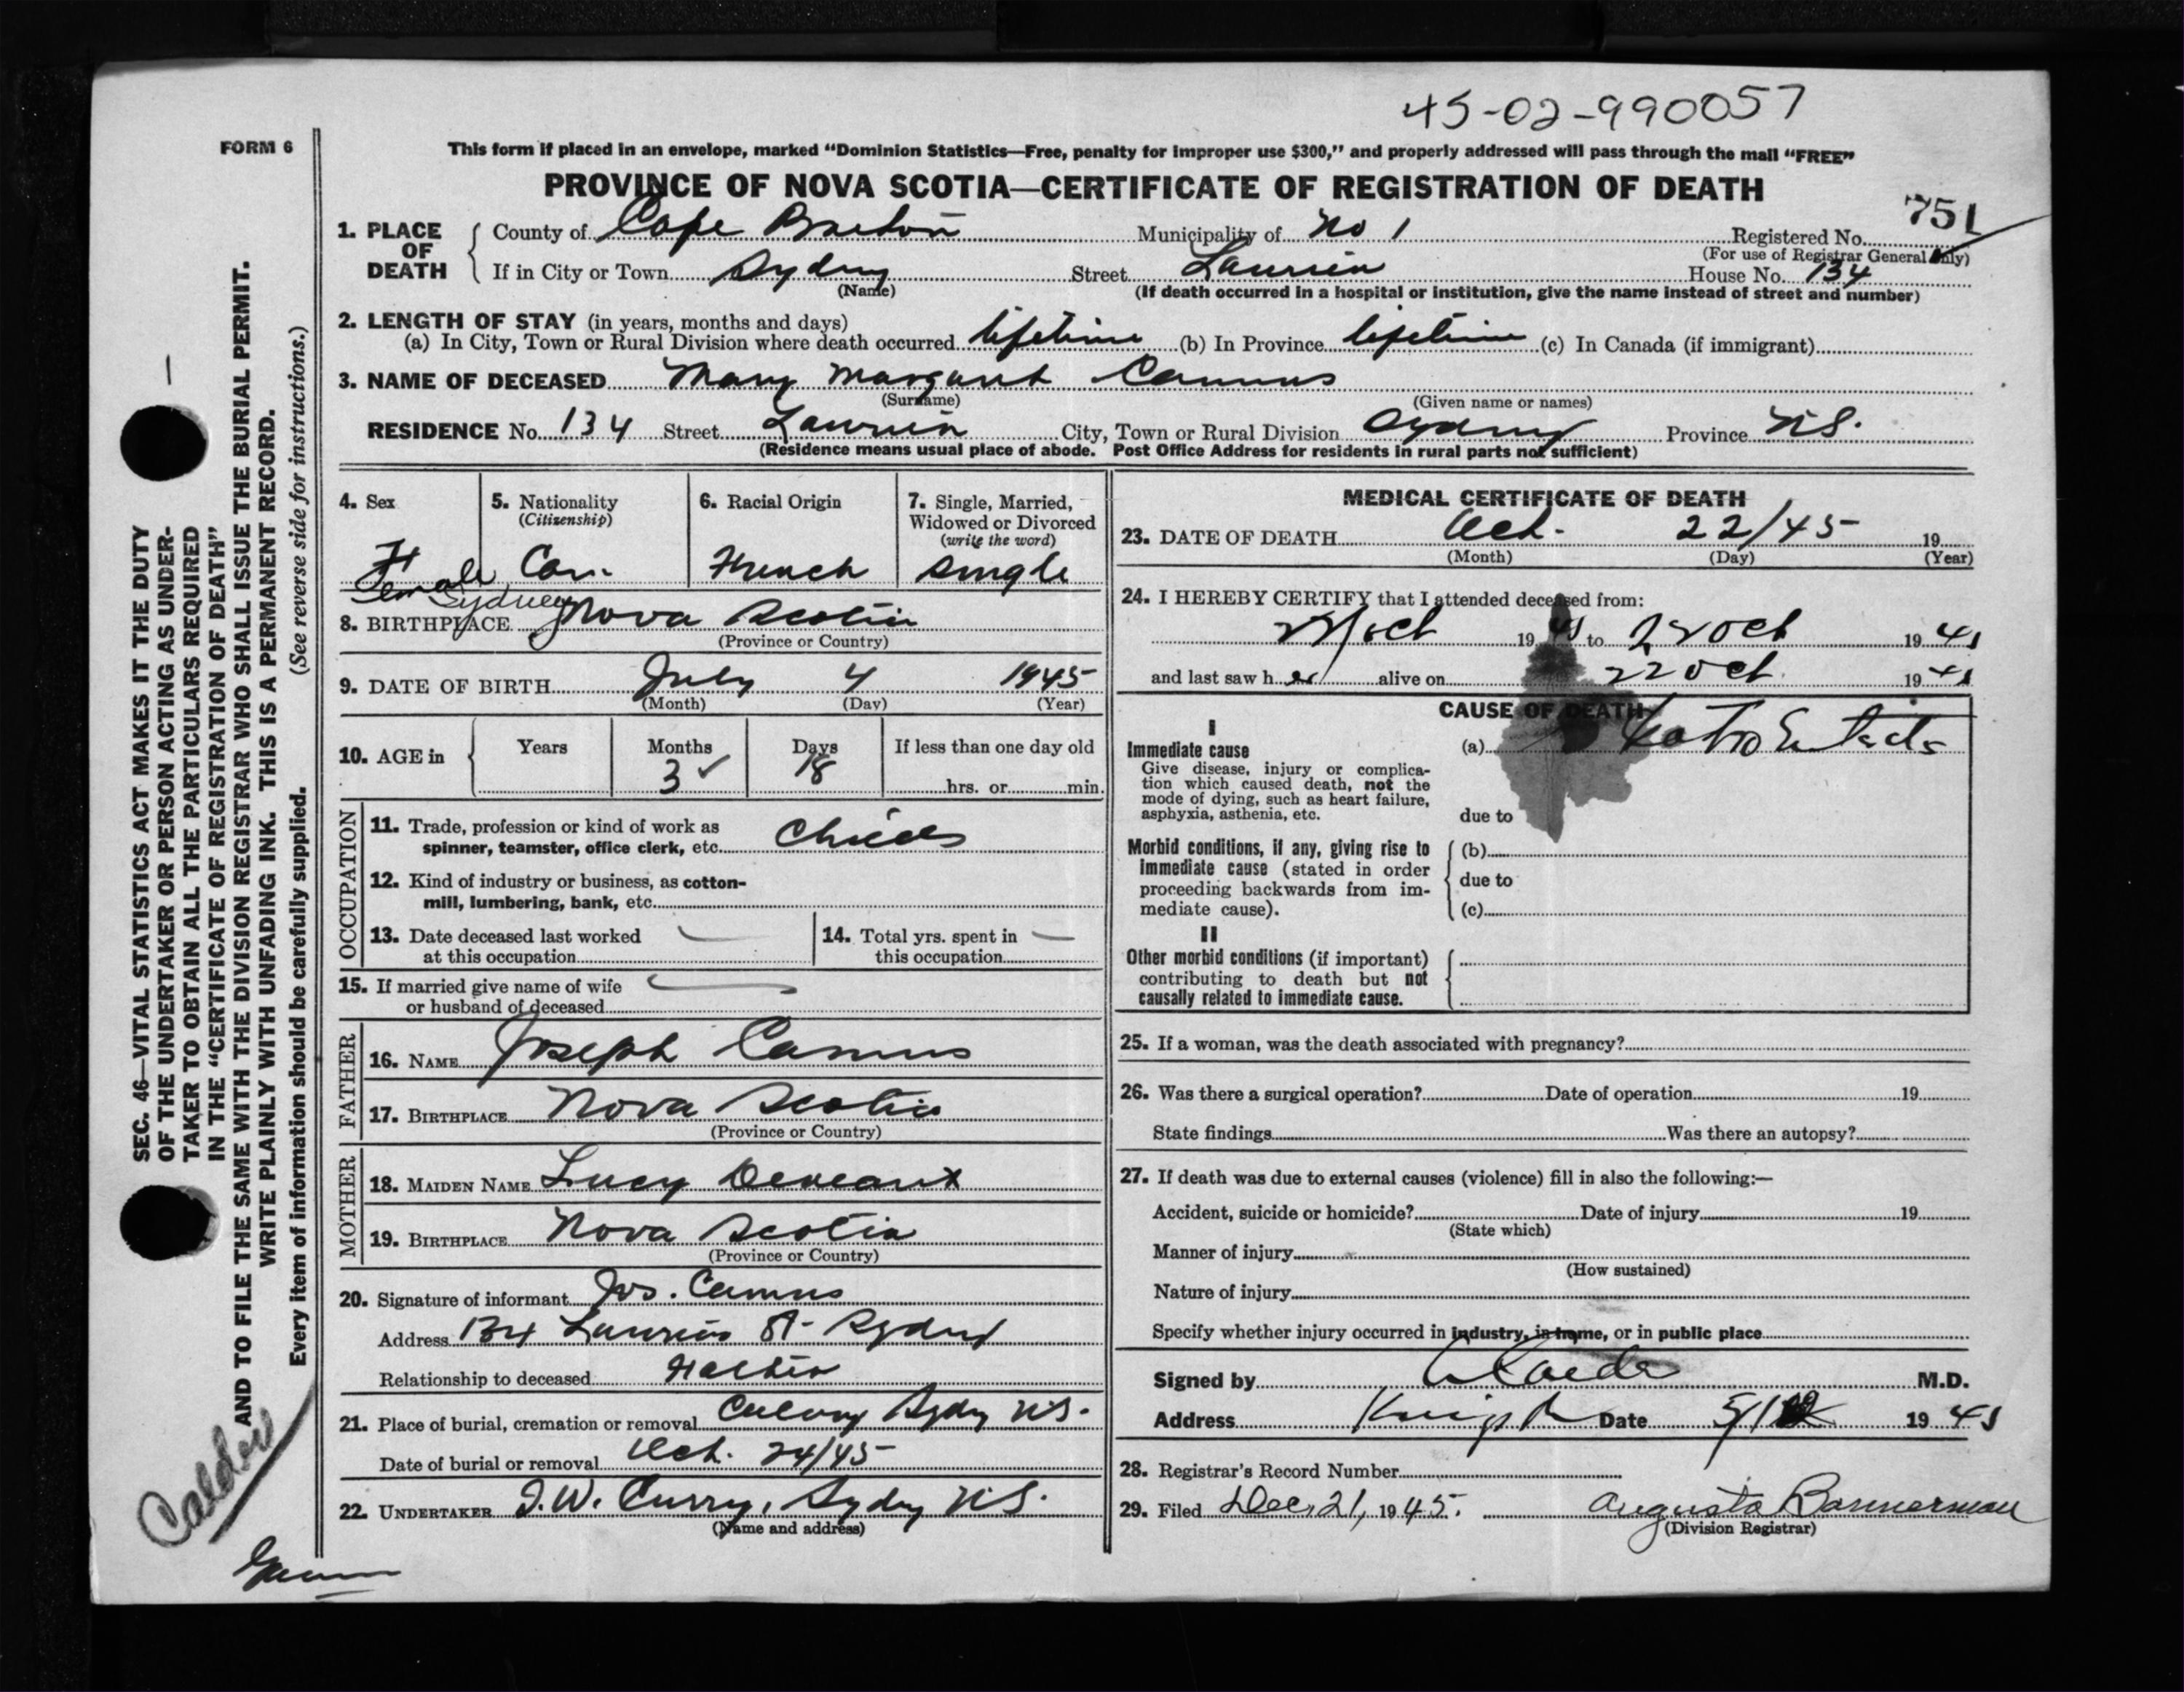 45-02-990057
FORM 6
This form if placed in an envelope, marked "Dominion Statistics—Free, penalty for improper use $300," and properly addressed will pass through the mail "FREE"
PROVINCE OF NOVA SCOTIA—CERTIFICATE OF REGISTRATION OF DEATH
751
1. PLACE OF DEATH County of Cape Breton Municipality of No 1 Registered No.
(For use of Registrar General Only)
If in City or Town Sydney Street House No. 134
(Name) (If death occurred in a hospital or institution, give the name instead of street and number)
2. LENGTH OF STAY (in years, months and days)
(a) In City, Town or Rural Division where death occurred lifetime (b) In Province lifetime (c) In Canada (if immigrant)
3. NAME OF DECEASED Mary Margaret Camus
(Surname) (Given name or names)
RESIDENCE No. 134 Street City, Town or Rural Division Sydney Province N.S.
(Residence means usual place of abode. Post Office Address for residents in rural parts not sufficient)
4. Sex 5. Nationality 6. Racial Origin 7. Single, Married,
(Citizenship) Widowed or Divorced
(write the word)
Female Can. French Single
Sydney
8. BIRTHPLACE Nova Scotia
(Province or Country)
9. DATE OF BIRTH July 4 1945
(Month) (Day) (Year)
10. AGE in Years Months Days If less than one day old
3 ✓ 18
hrs. or min.
OCCUPATION
11. Trade, profession or kind of work as
spinner, teamster, office clerk, etc. Child
12. Kind of industry or business, as cotton-
mill, lumbering, bank, etc.
13. Date deceased last worked 14. Total yrs. spent in
at this occupation this occupation
15. If married give name of wife
or husband of deceased
FATHER
16. NAME Joseph Camus
17. BIRTHPLACE Nova Scotia
(Province or Country)
MOTHER
18. MAIDEN NAME Lucy Deveaux
19. BIRTHPLACE Nova Scotia
(Province or Country)
20. Signature of informant Jos. Camus
Address 134 St. Sydney
Relationship to deceased Father
21. Place of burial, cremation or removal Sydney N.S.
Date of burial or removal Oct. 24/45
22. UNDERTAKER J.W. Curry, Sydney N.S.
(Name and address)
MEDICAL CERTIFICATE OF DEATH
23. DATE OF DEATH Oct. 22/45 19
(Month) (Day) (Year)
24. I HEREBY CERTIFY that I attended deceased from:
Oct 19 45 to 22 Oct 19 45
and last saw her alive on 22 Oct 19 45
CAUSE OF DEATH
I
Immediate cause (a)
Give disease, injury or complica-
tion which caused death, not the
mode of dying, such as heart failure,
asphyxia, asthenia, etc. due to
Morbid conditions, if any, giving rise to (b)
immediate cause (stated in order due to
proceeding backwards from im-
mediate cause). (c)
II
Other morbid conditions (if important)
contributing to death but not
causally related to immediate cause.
25. If a woman, was the death associated with pregnancy?
26. Was there a surgical operation? Date of operation 19
State findings Was there an autopsy?
27. If death was due to external causes (violence) fill in also the following:—
Accident, suicide or homicide? Date of injury 19
(State which)
Manner of injury
(How sustained)
Nature of injury
Specify whether injury occurred in industry, in home, or in public place
Signed by M.D.
Address Date 19 45
28. Registrar's Record Number
29. Filed Dec. 21, 1945. Augusta Bannerman
(Division Registrar)
SEC. 46—VITAL STATISTICS ACT MAKES IT THE DUTY
OF THE UNDERTAKER OR PERSON ACTING AS UNDER-
TAKER TO OBTAIN ALL THE PARTICULARS REQUIRED
IN THE "CERTIFICATE OF REGISTRATION OF DEATH"
AND TO FILE THE SAME WITH THE DIVISION REGISTRAR WHO SHALL ISSUE THE BURIAL PERMIT.
WRITE PLAINLY WITH UNFADING INK. THIS IS A PERMANENT RECORD.
Every item of information should be carefully supplied. (See reverse side for instructions.)